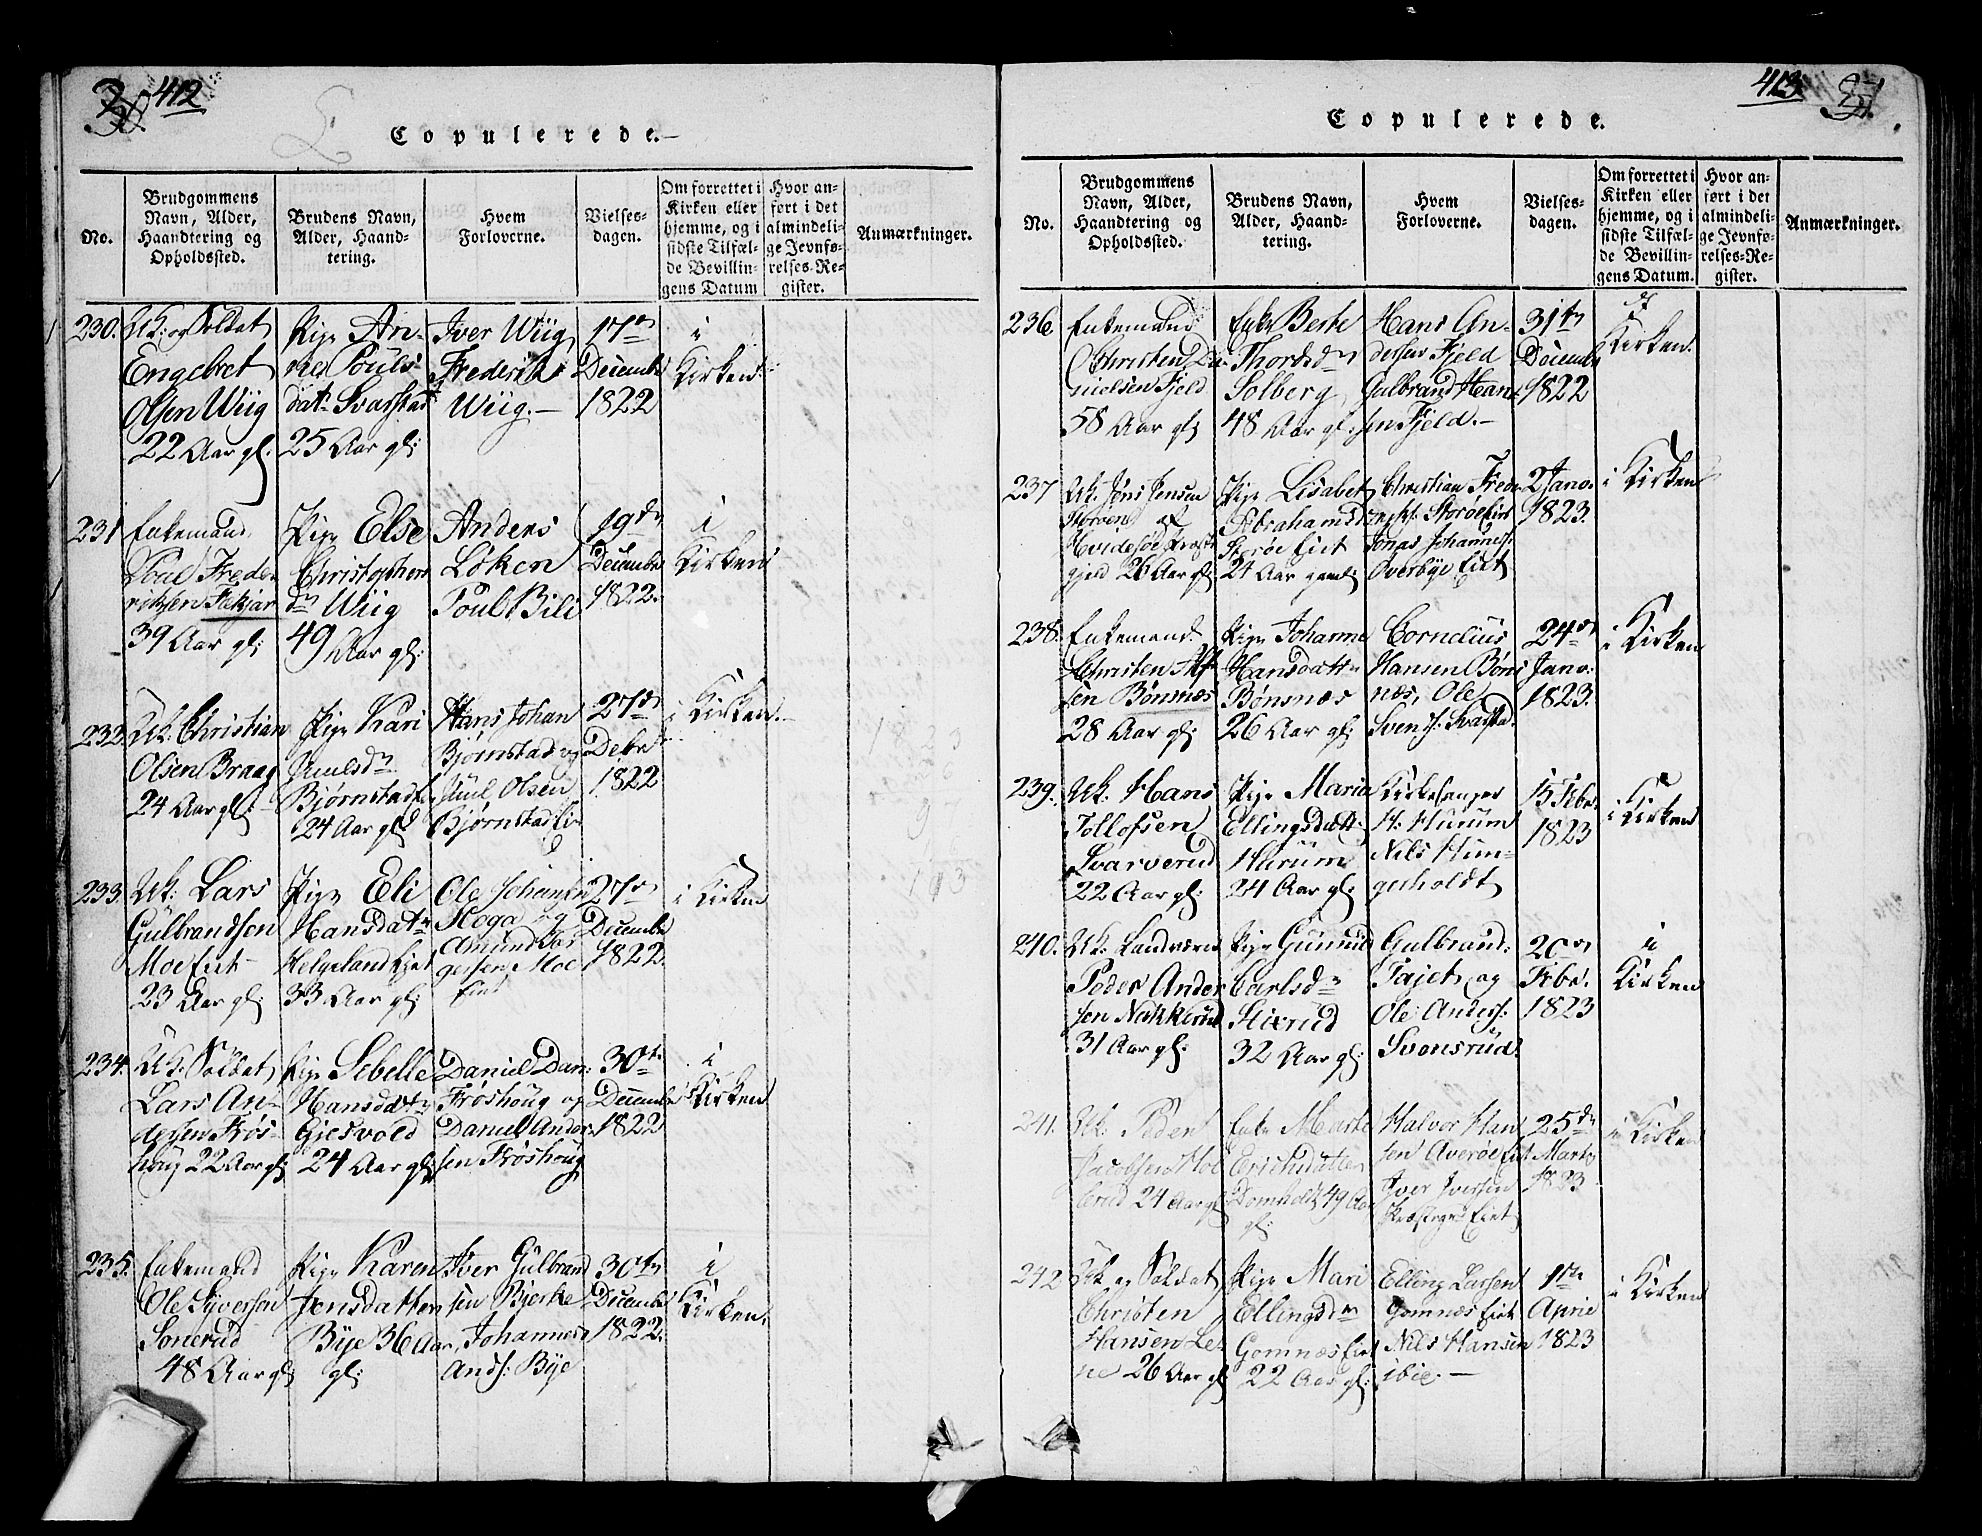 412
Copulerede.
No.
Brudgommens Navn, Alder, Haandtering og Opholdssted.
Brudens Navn, Alder, Haandtering.
Hvem Forloverne.
Vielsesdagen.
Om forrettet i Kirken eller hjemme, og i sidste Tilfælde Bevillingens Datum
Hvor anført i det almindelige Jevnførelses-Register.
Anmærkninger.
230.
Uk: og Soldat
Engebret
Olsen Wiig
22 Aar gl.
Pige An-
ne Pouls-
dat: Svarstad
25 Aar gl:
Iver Wiig
Frederik
Wiig.
17de
Decembr
1822
i
Kirken.
231
Enkemand
Poul Frede-
riksen
39 Aar gl:
Pige Else
Christophers
dr Wiig
49 Aar gl:
Anders
Løken
Poul Bili
19de
Decembr
1822.
i
Kirken
232.
Uk. Christian
Olsen Braag
24 Aar gl:
Pige Kari
Juulsdr
Bjørnstad
24 Aar gl
Hans Johan
Bjørnstad og
Juul Olsen
Bjørnstad Ei
27de
Debr
1822
i Kirken.
233.
Uk: Lars
Gulbrandsen
Moe Eiet
23 Aar gl:
Pige Eli
Hansdatr
Helgeland Eiet
33 Aar gl:
Ole Johannes
Moga og
Amund Tor
gersen Moe
Eiet
27de
Decembr
1822.
i Kirken
234.
Uk: Soldat
Lars An-
dersen Frøs-
houg 22 Aar gl:
Pige Sebelle
Hansdatr
Gjesvold
24 Aar gl:
Daniel Dan:
Frøshoug og
Daniel Ander-
sen Frøshoug
30te
Decembr
1822
i
Kirken
235.
Enkemand
Ole Syversen
Sonerud
48 Aar gl:
Pige Karen
Jensdatter
Bye 36 Aar
gl:
Iver Gulbrand
sen Bjerke
Johannes
Ands: Bye
30te
Decembr
1822.
i
Kirken.
413
Copulerede.
No.
Brudgommens Navn, Alder, Haandtering og Opholdssted.
Brudens Navn, Alder, Haandtering.
Hvem Forloverne.
Vielsesdagen.
Om forrettet i Kirken eller hjemme, og i sidste Tilfælde Bevillingens Datum.
Hvor anført i det almindelige Jevnførelses-Register.
Anmærkninger.
236
Enkemand
Christen Da-
nielsen Fjeld
58 Aar gl:
Enke Berte
Thordsdr
Solberg
48 Aar gl:
Hans An-
dersen Fjeld
Gulbrand Han-
sen Fjeld.
31te
Decemb
1822
i
Kirken.
237
Uk. Jens Jensen
Hvidesøe Præste
gjeld 26 Aar gl:
Pige Lisabet
Abrahamsd
Storøe Eiet
24 Aar gamel
Christian Frede
Storøe Eiet
Jonas Johannes:
Overbye Eiet
2 Jano:
1823.
i Kirken
238.
Enkemand
Christen Alf
sen Bønsnæs
28 Aar gl:
Pige Johanne
Hansdattr
Bønsnæs
26 Aar gl:
Cornelius
Hansen Bøns
næs, Ole
Svens: Svarstad.
24de
Jano:
1823.
i Kirken
239.
Uk. Hans
Tollofsen
Svarverud
22 Aar gl:
Pige Maria
Ellingsdatt:
Hurum
24 Aar gl:
Kirkesanger
H: Hurum
Nils Hun-
gerholdt
15 Febr.
1823
i Kirken
240.
Uk: Landværn
Peder Ander
sen Nakkerud
31 Aar gl:
Pige Gunnild
Carlsdr
Stixrud
32 Aar gl:
Gulbrand
Tajet og
Ole Anders:
Svensrud.
20de
Febr.
1823
i
Kirken
241.
Uk: Peder
Jacobsen Hol
erud 24 Aar gl
Enke Marte
Erichsdatter
Domholt 49 Aar
gl:
Halvor Han
sen Averøe Eiet
Iver Iversen
Præstegrd Eiet
25de
Marts
1823
i Kirken
242
Uk og Soldat
Christen
Hansen Le-
ne 26 Aar gl
Pige Mari
Ellingsdr
Gomnæs Eiet
22 Aar gl:
Elling Larsen
Gomnæs Eiet
Nils Hansen
ibid.
1te
April
1823
i Kirken